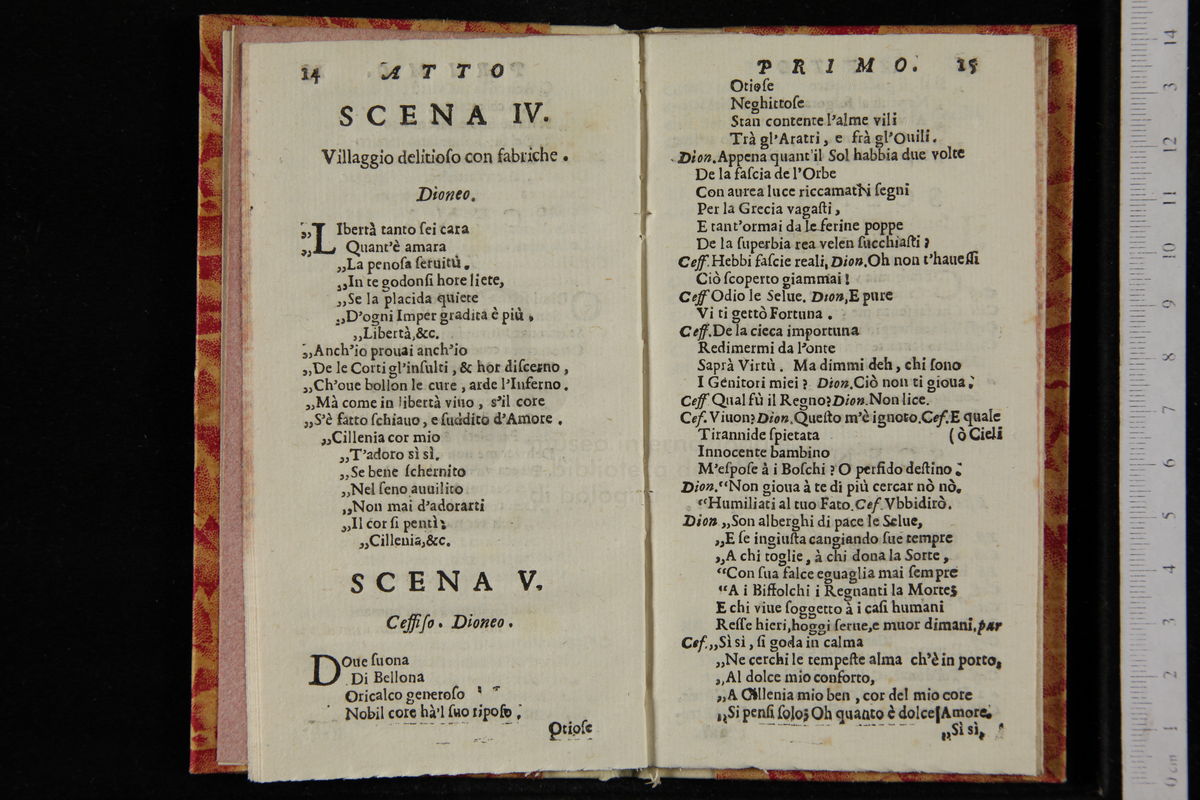 14 ATTO
SCENA IV.
Villaggio delitioſo con fabriche.
Dioneo.
„LIbertà tanto ſei cara
„ Quant'è amara
„La penoſa ſeruitù.
„In te godonſi hore liete,
„Se la placida quiete
„D'ogni Imper gradita è più.
„Libertà,&c.
„Anch'io prouai anch'io
„De le Corti gl'inſulti, & hor diſcerno,
„Ch'oue bollon le cure, arde l'Inferno.
„Mà come in libertà viuo, s'il core
„S'è fatto ſchiauo, e ſuddito d'Amore.
„Cillenia cor mio
„T'adoro sì sì.
„Se bene ſchernito
„Nel ſeno auuilito
„Non mai d'adorarti
„Il cor ſi pentì;
„Cillenia,&c.
SCENA V.
Ceffiſo. Dioneo.
DOue ſuona
Di Bellona
Oricalco generoſo
Nobil core hà'l ſuo ripoſo;
Otioſe
PRIMO. 15
Otioſe
Neghittoſe
Stan contente l'alme vili
Trà gl'Aratri, e frà gl'Ouili.
Dion. Appena quant'il Sol habbia due volte
De la faſcia de l'Orbe
Con aurea luce riccamati i ſegni
Per la Grecia vagaſti,
E tant'ormai da le ferine poppe
De la ſuperbia rea velen ſucchiaſti?
Ceff. Hebbi faſcie reali, Dion. Oh non t'haueſſi
Ciò ſcoperto giammai!
Ceff Odio le Selue. Dion, E pure
Vi ti gettò Fortuna.
Ceff. De la cieca importuna
Redimermi da l'onte
Saprà Virtù. Ma dimmi deh, chi ſono
I Genitori miei? Dion. Ciò non ti gioua.
Ceff Qual fù il Regno? Dion. Non lice.
Cef. Viuon? Dion. Queſto m'è ignoto. Cef. E quale
Tirannide ſpietata (ò Cieli
Innocente bambino
M'eſpoſe à i Boſchi? O perfido deſtino.
Dion. “Non gioua à te di più cercar nò nò.
“Humiliati al tuo Fato. Cef. Vbbidirò.
Dion „Son alberghi di pace le Selue,
„E ſe ingiuſta cangiando ſue tempre
„A chi toglie, à chi dona la Sorte,
“Con ſua falce eguaglia mai ſempre
“A i Biffolchi i Regnanti la Morte;
E chi viue ſoggetto à i caſi humani
Reſſe hieri, hoggi ſerue, e muor dimani, par
Cef. „Sì si, ſi goda in calma
„Ne cerchi le tempeſte alma ch'è in porto,
„Al dolce mio conforto,
„A Cillenia mio ben, cor del mio core
„Si penſi ſolo; Oh quanto è dolce Amore.
„Sì sì,